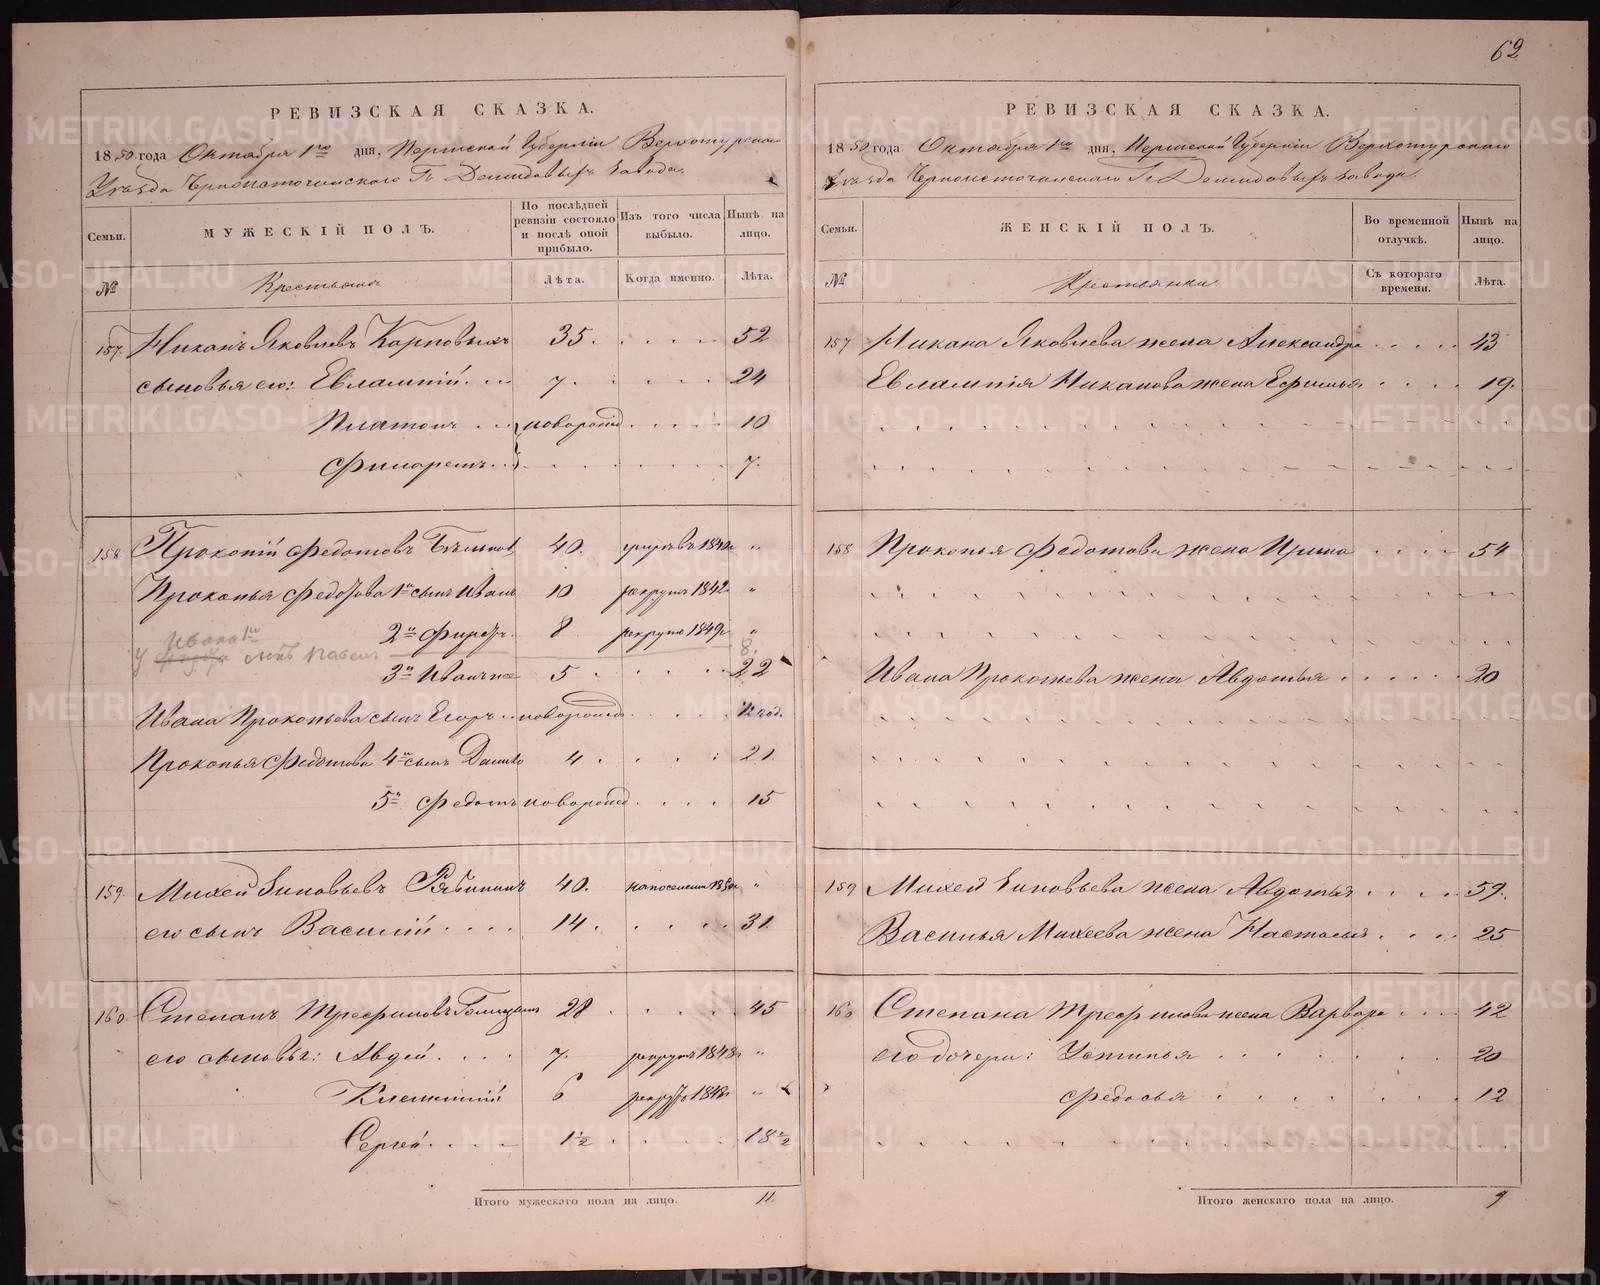 62
РЕВИЗСКАЯ СКАЗКА.
1850 года Октября 1го дня, Пермской Губерніи Верхотурскаго
Уѣзда Черноисточинскаго Гг. Демидовыхъ завода.
Семьи.
МУЖЕСКІЙ ПОЛЪ.
По послѣдней ревизіи состояло и послѣ оной прибыло.
Изъ того числа выбыло.
Нынѣ на лицо.
№
Крестьяне
Лѣта.
Когда именно.
Лѣта.
157. Никанъ Яковлевъ Карповыхъ 35. 52
сыновья его: Евлампій 7. 24
Платонъ новорожд 10
Филаретъ 7.
158. Прокопій Федотовъ 40. 184 „
Прокопья Федотова 1й сынъ Иванъ 10 рекрутъ 1842 „
2й 8 рекрутъ 1849 „
Ивана 1го
У сынъ Павелъ 8.
3й Иванъ же 5 22
Ивана Прокопьева сынъ Егоръ новорожд ½ год.
Прокопья Федотова 4й сынъ Данило 4 21
5й Федотъ новорожд 15
159. Михей Зиновьевъ Рябининъ 40. на поселеніи „
его сынъ Василій 14. 31
160. Степанъ Трефиловъ 28 45
его сыновья: Авдей 7. рекрутъ 1848 „
Климентій 6 рекрутъ „
Сергей 1½ 18½
Итого мужескаго пола на лицо. 11.
РЕВИЗСКАЯ СКАЗКА.
1850 года Октября 1го дня, Пермской Губерніи Верхотурскаго
Уѣзда Черноисточинскаго Гг. Демидовыхъ завода.
Семьи.
ЖЕНСКІЙ ПОЛЪ.
Во временной отлучкѣ.
Нынѣ на лицо.
№
Крестьянки.
Съ котораго времени.
Лѣта.
157 Никана Яковлева жена Александра 43
Евлампія Никанова жена Ефимья 19.
158 Прокопья Федотова жена Ирина 54
Ивана Прокопьева жена Авдотья 20
159 Михея Зиновьева жена Авдотья 59.
Василья Михеева жена Настасья 25
160 Степана Трефилова жена Варвара 42
его дочери: Устинья 20
Федосья 12
Итого женскаго пола на лицо. 9
METRIKI.GASO-URAL.RU